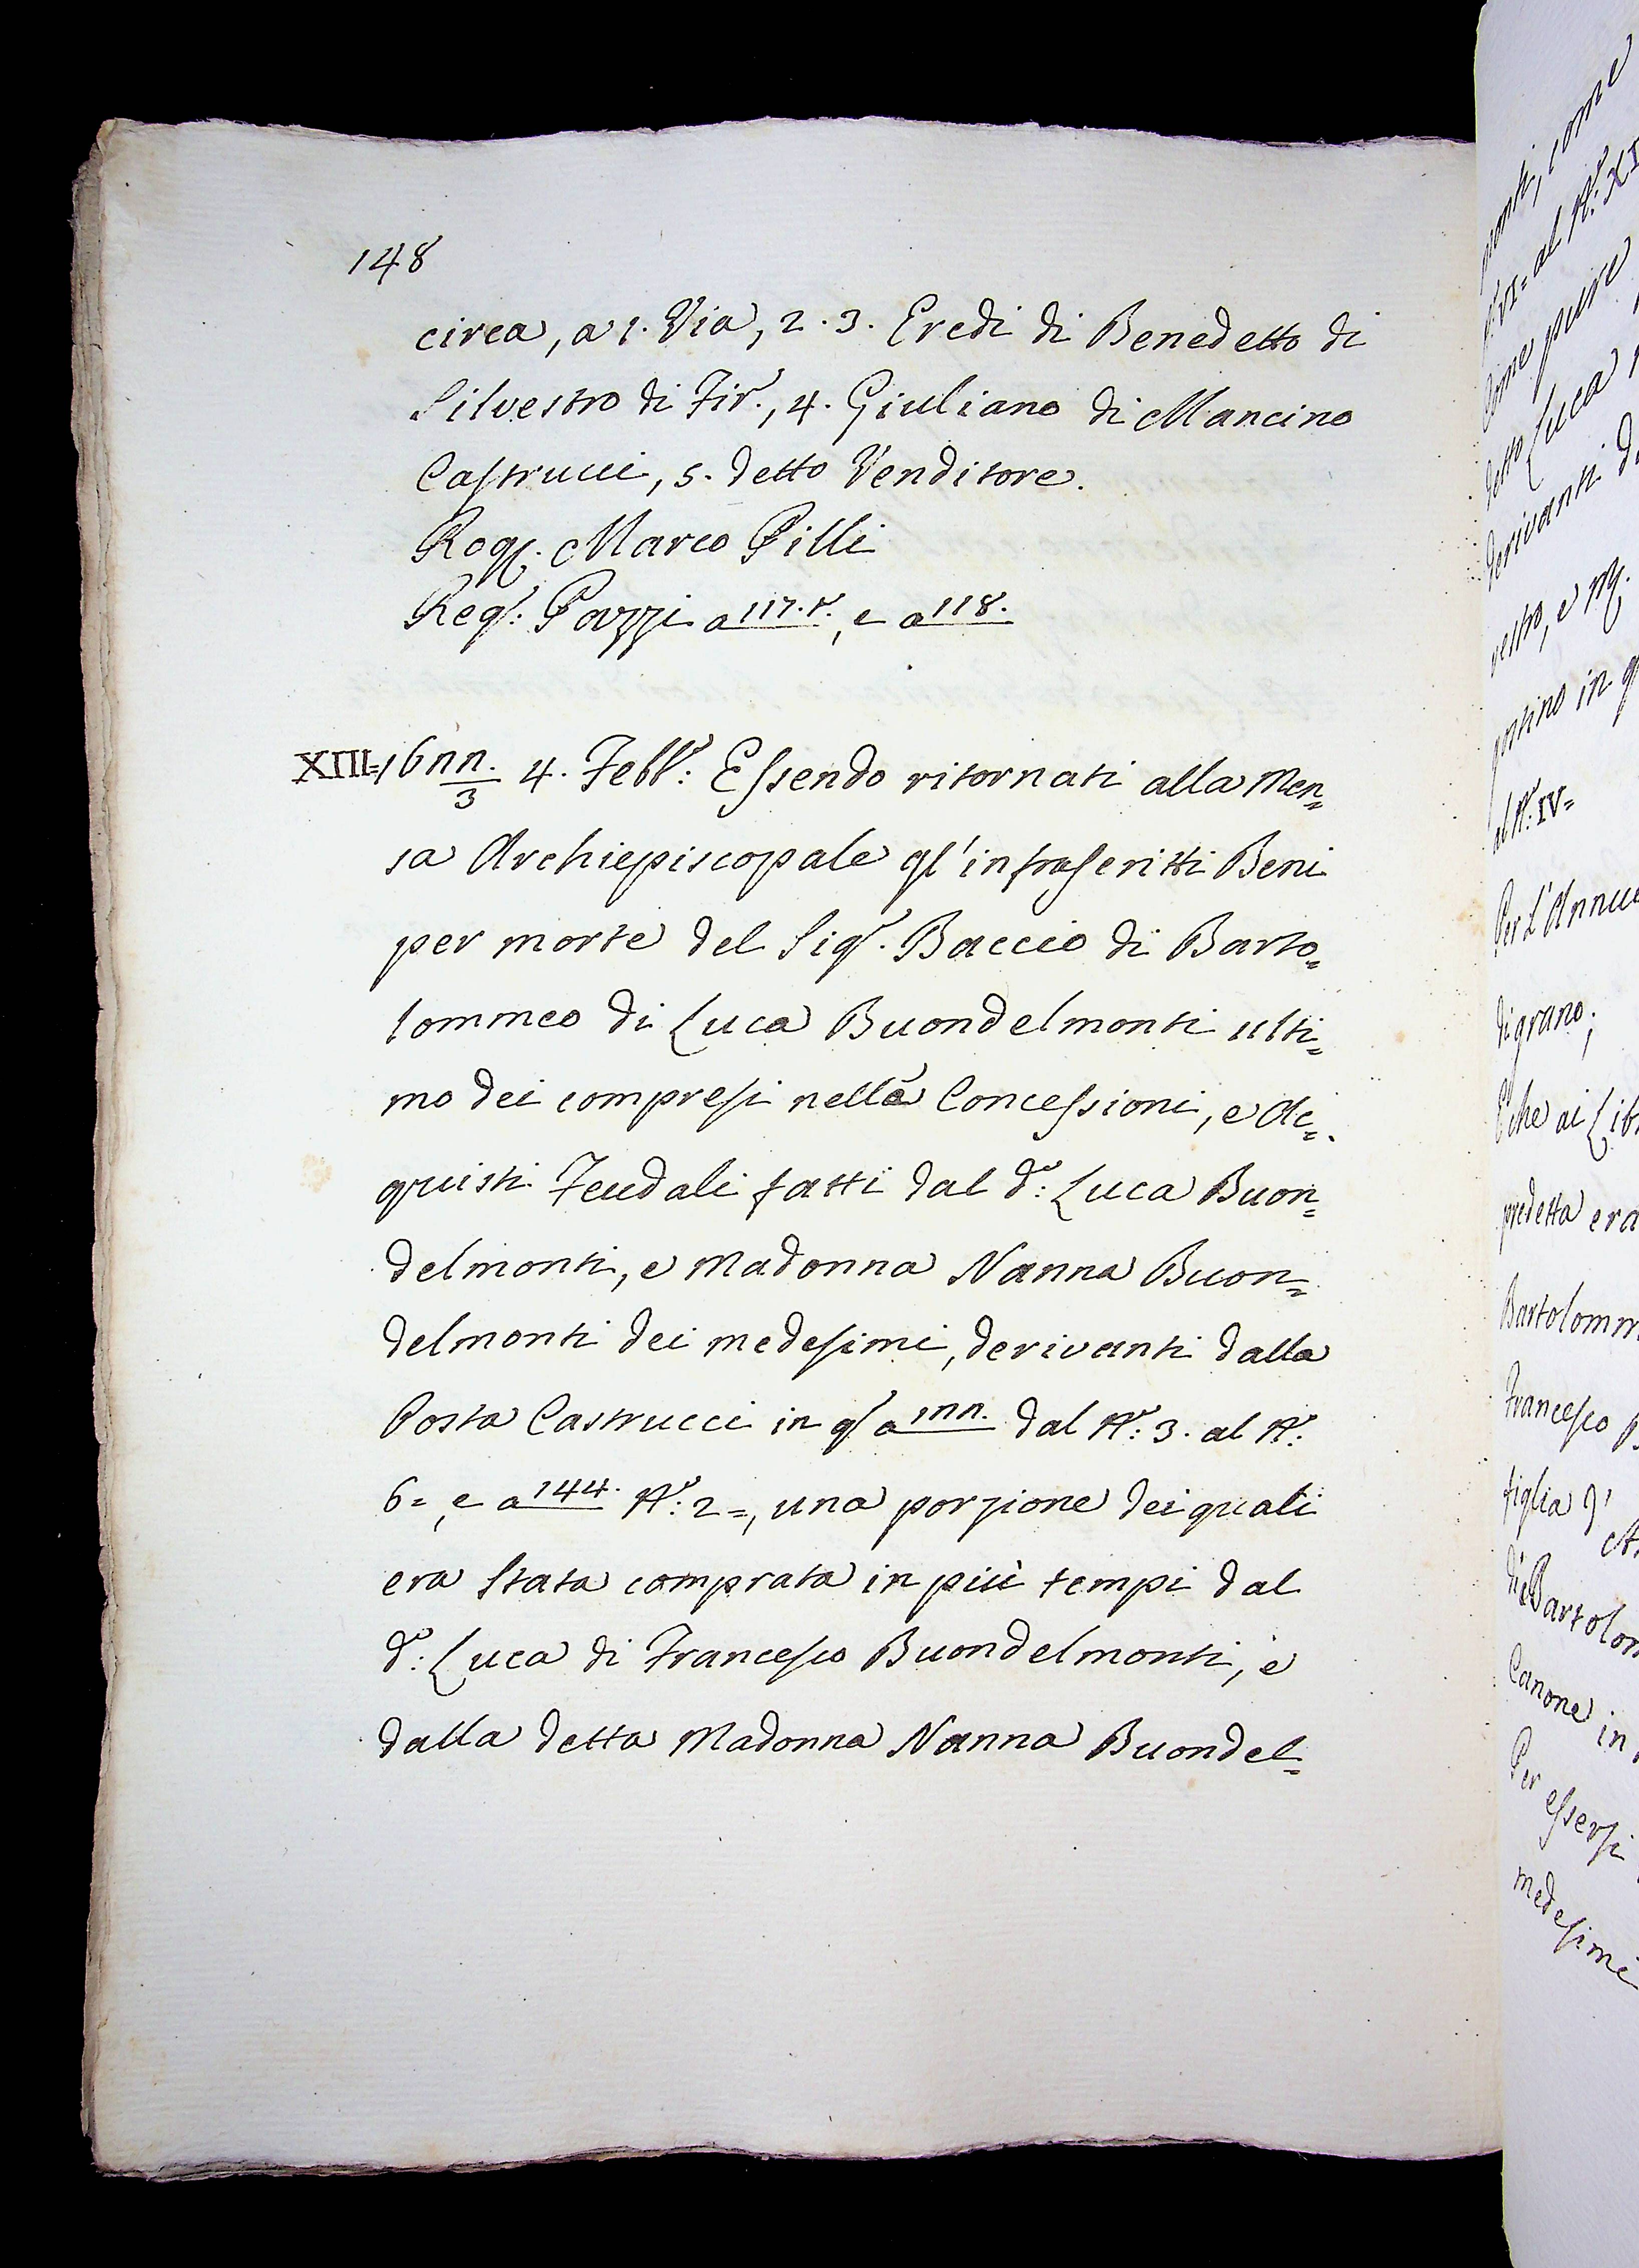 148
circa, a 1. Via, 2. 3. Eredi di Benedetto di
Silvestro di Fir., 4. Giuliano di Mancino
Castrucci, 5. detto Venditore.
Rog. Marco Pilli
Reg: Pazzi a 117. r., e a 118.
XIII= 16nn./3 4. Febb: Essendo ritornati alla Men=
sa Archiepiscopale gl'infrascritti Beni
per morte del Sig. Baccio di Barto=
lommeo di Luca Buondelmonti ulti=
mo dei compresi nelle Concessioni, e Ac=
quisti Feudali fatti dal do: Luca Buon=
delmonti, e Madonna Nanna Buon=
delmonti dei medesimi, derivanti dalla
Posta Castrucci in q a 1nn. dal No: 3. al No:
6=, e a 144. No: 2=, una porzione dei quali
era stata comprata in più tempi dal
do: Luca di Francesco Buondelmonti, e
dalla detta Madonna Nanna Buondel=
come
al No: XI
come pure
detto Luca
derivanti
vestro, e
in
al No: IV=
Per l'Annuo
di grano;
E che ai
predetta era
Bartolomm
Francesco
figlia
di Bartolom
Canone in
Per essersi
medesimi